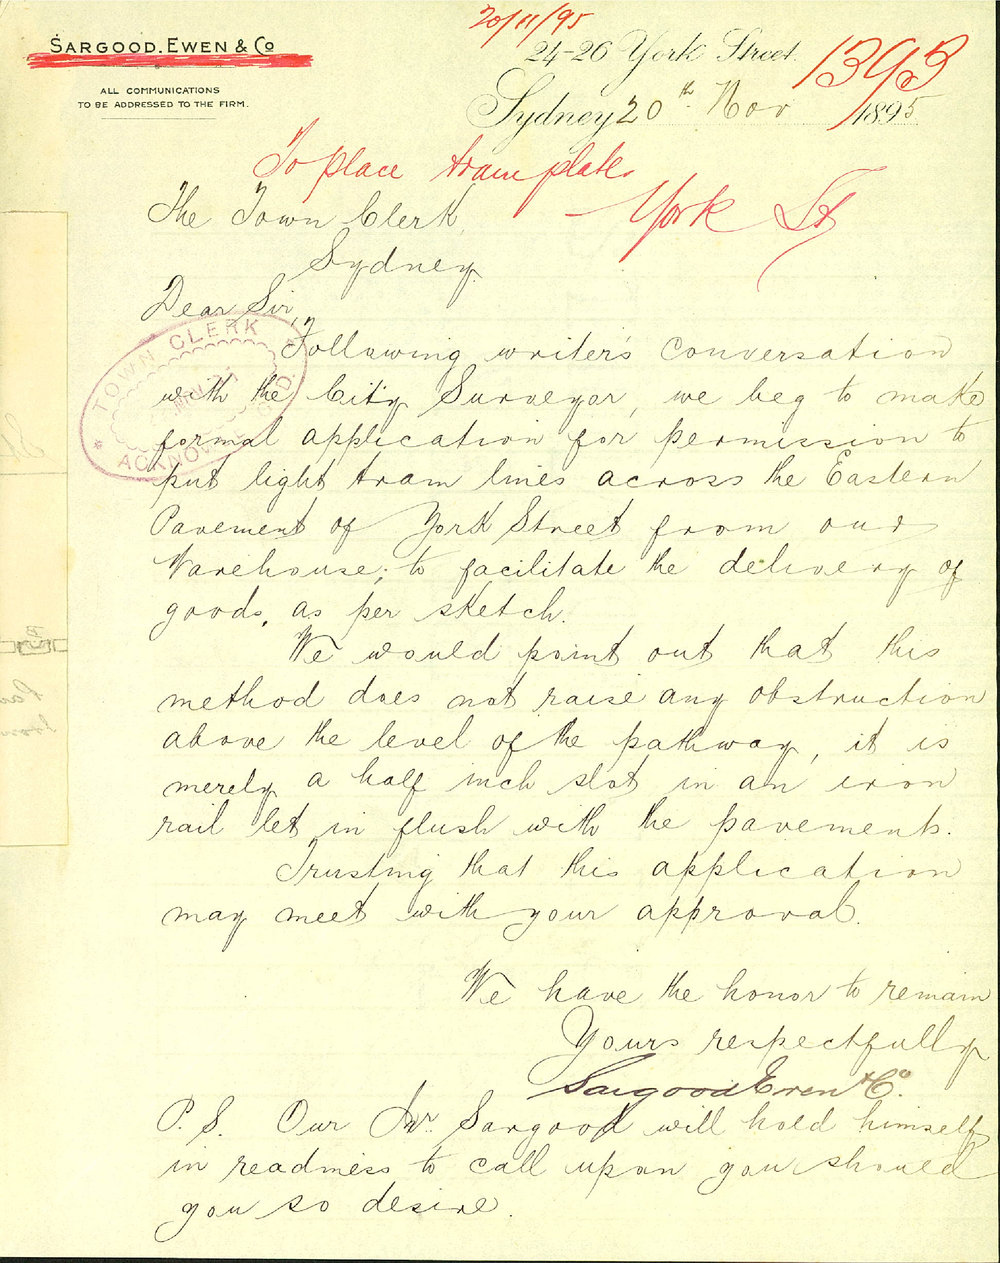 20/11/95
SARGOOD, EWEN & Co
24-26 York Street.
1393
ALL COMMUNICATIONS
TO BE ADDRESSED TO THE FIRM.
Sydney 20th Nov 1895
To place tram plates
York St
The Town Clerk,
Sydney.
Dear Sir,
TOWN CLERK
ACKNOW G D.
Following writer's conversation
with the City Surveyor, we beg to make
formal application for permission to
put light tram lines across the Eastern
Pavement of York Street from our
Warehouse, to facilitate the delivery of
goods, as per sketch.
We would point out that this
method does not raise any obstruction
above the level of the pathway, it is
merely a half inch slot in an iron
rail let in flush with the pavements.
Trusting that this application
may meet with your approval.
We have the honor to remain
Yours respectfully
Sargood Ewen & Co.
P.S. Our Mr. Sargood will hold himself
in readiness to call upon you should
you so desire.